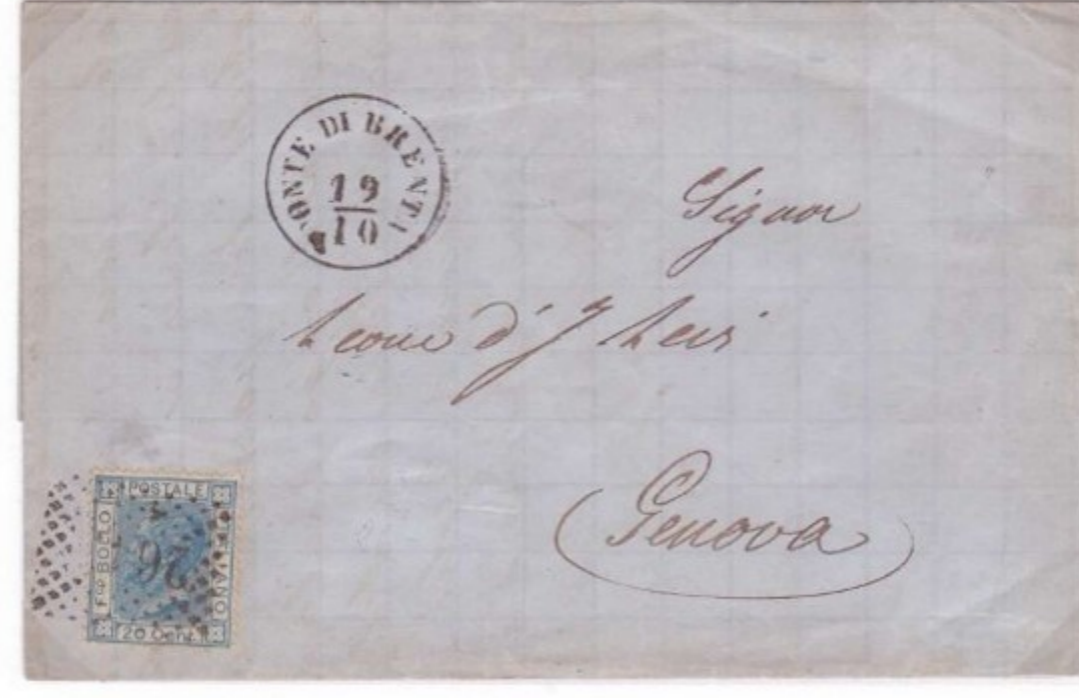 PONTE DI BRENTA
19
10
Signor
Leone d' J Levi
Genova
POSTALE
Fco BOLLO
ITALIANO
20 Cent.
26